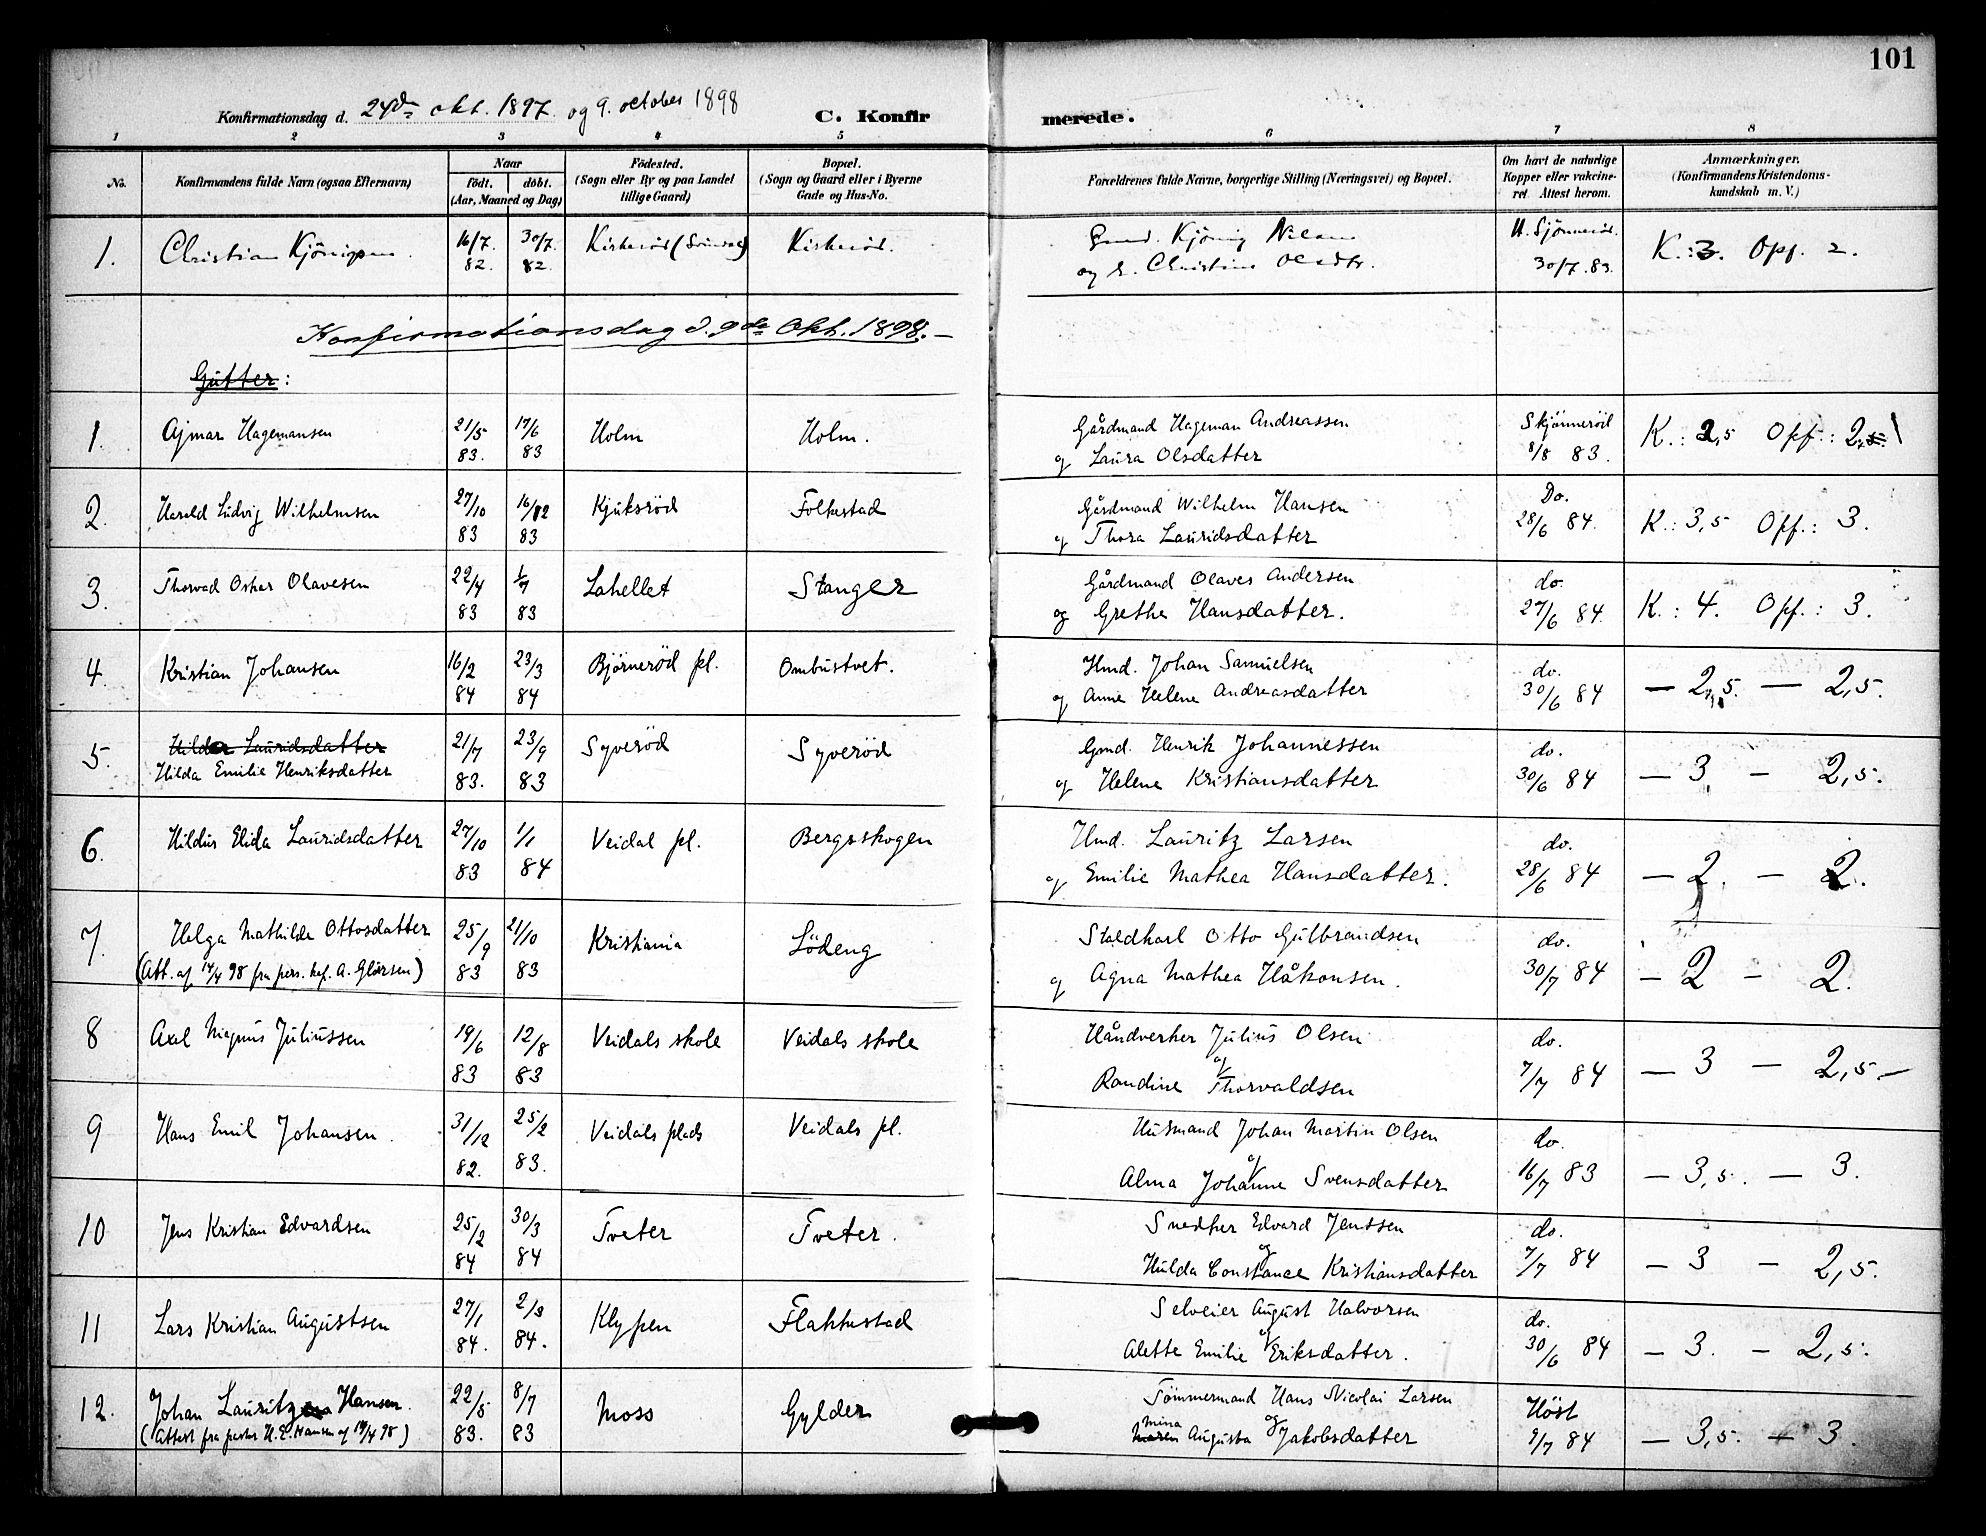 101
Konfirmationsdag d. 24de okt. 1897. og 9. october 1898
C. Konfirmerede.
1 2 3 4 5 6 7 8
No.
Konfirmandens fulde Navn (ogsaa Efternavn)
Naar
födt. döbt.
(Aar, Maaned og Dag)
Födested.
(Sogn eller By og paa Landet
tillige Gaard)
Bopæl.
(Sogn og Gaard eller i Byerne
Gade og Hus-No.
Forældrenes fulde Navne, borgerlige Stilling (Næringsvei) og Bopæl.
Om havt de naturlige
Kopper eller vakcine-
ret. Attest herom.
Anmærkninger.
(Konfirmandens Kristendoms-
kundskab m. V.)
1. Christian 16/7. 30/7.
82. 82.
og Christine
30/7. 83.
K.: 3. Opf. 2.
Konfirmationsdag d. 9de Okt. 1898.
Gutter:
1. Ajmar Hagemansen 21/5 17/6 Holm Holm. Gårdmand Hageman Andreassen Skjønneröd K.: 2,5 Opf.: 2
83. 83 og Laura Olsdatter 8/8 83.
2. Harald Ludvig Wilhelmsen 27/10 16/12 Kjuksröd Folkestad Gårdmand Wilhelm Hansen Do. K.: 3,5 Opf.: 3.
83 83 og Thora Lauridsdatter 28/6 84.
3. Thorvad Oskar Olavesen 22/4 1/7 Lahellet Stanger Gårdmand Olaves Andersen do. K.: 4. Opf.: 3.
83 83 og Grethe Hansdatter. 27/6 84.
4. Kristian Johansen 16/2 23/3 Bjørneröd pl. Ombustvet. Hmd. Johan Samuelsen do. — 2,5. — 2,5.
84 84 og Anne Helene Andreasdatter 30/6 84
5. Hilda Lauridsdatter 21/7 23/9 Syveröd Syveröd Gmd. Henrik Johannessen do. — 3. — 2,5.
Hilda Emilie Henriksdatter 83. 83 og Helene Kristiansdatter 30/6 84
6. Hildur Elida Lauridsdatter 27/10 1/1 Veidal pl. Bergsskogen Hmd. Lauritz Larsen do. — 2. — 2.
83 84 og Emilie Mathea Hansdatter. 28/6 84
7. Helga Mathilde Ottosdatter 25/9 21/10 Kristiania Lödeng Staldkarl Otto Gulbrandsen do. — 2 — 2.
(Att. af 14/4 98 fra pers. kap. A. Glärsen) 83 83 og Agna Mathea Håkonsen. 30/7 84
8 Axel Magnus Juliussen 19/6 12/8 Veidals skole Veidals skole Håndverker Julius Olsen do. — 3 — 2,5. —
83 83 og Randine Thorvaldsen 7/7 84
9 Hans Emil Johansen. 31/12 25/2 Veidals plads Veidals pl. Husmand Johan Martin Olsen do. — 3,5. — 3.
82. 83. og Alma Johanne Svensdatter 16/7 83
10 Jens Kristian Edvardsen 25/2 30/3 Tveter Tveter. Snedker Edvard Jenssen do. — 3 — 2,5.
84 84 og Hulda Constance Kristiansdatter 7/7 84
11 Lars Kristian Augustsen 27/1 2/3 Klypen Flakkestad Selveier August Halvorsen do. — 3. — 2,5.
84. 84. og Alette Emilie Eriksdatter. 30/6 84
12. Johan Lauritz Hansen. 22/5 8/7 Moss Gylder Tömmermand Hans Nicolai Larsen Höst — 3,5. — 3.
(Attest fra pastor H. E. Hansen af 19/4 98) 83. 83 og mina Maren Augusta Jakobsdatter 9/7 84